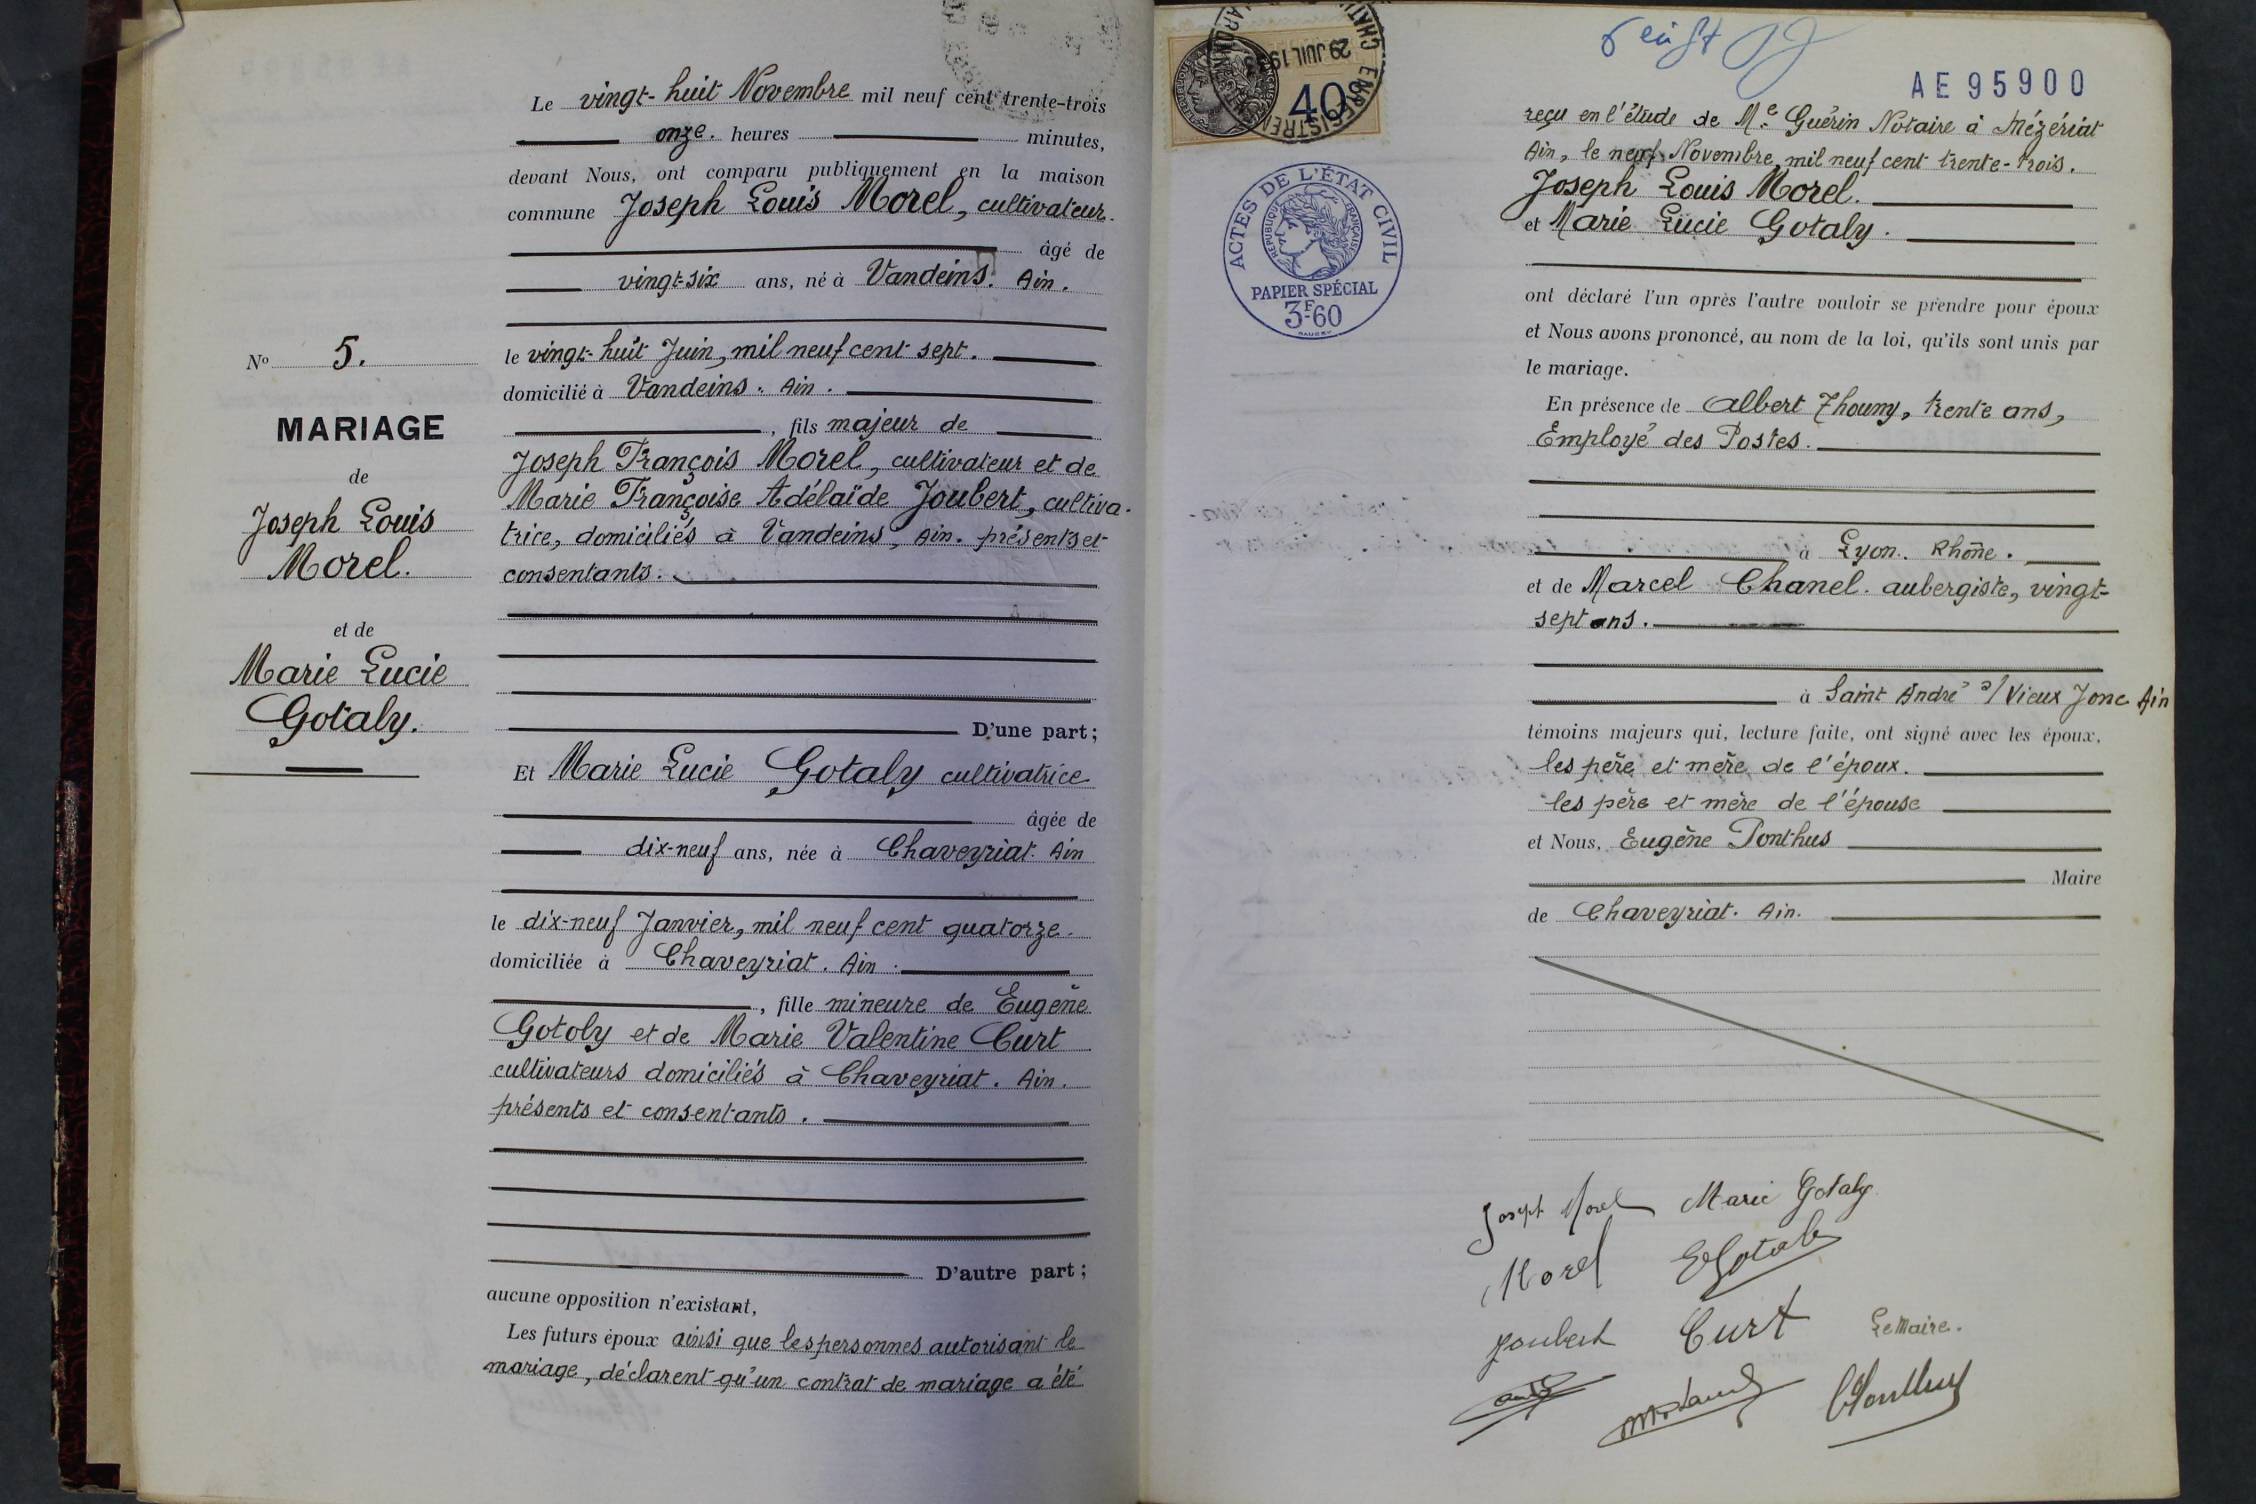 Le vingt-huit Novembre mil neuf cent trente-trois
onze. heures minutes,
devant Nous, ont comparu publiquement en la maison
commune Joseph Louis Morel, cultivateur.
âgé de
vingt-six ans, né à Vandeins. Ain.
le vingt-huit Juin, mil neuf cent sept.
domicilié à Vandeins. Ain.
, fils majeur de
Joseph François Morel, cultivateur et de
Marie Françoise Adélaïde Joubert, cultiva-
trice, domiciliés à Vandeins, Ain. présents et
consentants.
D'une part;
Et Marie Lucie Gotaly cultivatrice
âgée de
dix-neuf ans, née à Chaveyriat. Ain
le dix-neuf Janvier, mil neuf cent quatorze.
domiciliée à Chaveyriat. Ain.
, fille mineure de Eugène
Gotoly et de Marie Valentine Curt
cultivateurs domiciliés à Chaveyriat. Ain.
présents et consentants.
D'autre part;
aucune opposition n'existant,
Les futurs époux ainsi que les personnes autorisant le
mariage, déclarent qu'un contrat de mariage a été
No 5.
MARIAGE
de
Joseph Louis
Morel.
et de
Marie Lucie
Gotaly.
40
29 JUIL 19
ACTES DE L'ÉTAT CIVIL
RÉPUBLIQUE FRANÇAISE
PAPIER SPÉCIAL
3F60
AE 95900
reçu en l'étude de Me Guérin Notaire à Mézériat
Ain, le neuf Novembre, mil neuf cent trente-trois.
Joseph Louis Morel.
et Marie Lucie Gotaly.
ont déclaré l'un après l'autre vouloir se prendre pour époux
et Nous avons prononcé, au nom de la loi, qu'ils sont unis par
le mariage.
En présence de Albert Thoumy, trente ans,
Employé des Postes.
à Lyon. Rhône.
et de Marcel Chanel. aubergiste, vingt-
sept ans.
à Saint André s/ Vieux Jonc Ain
témoins majeurs qui, lecture faite, ont signé avec les époux,
les père et mère de l'époux.
les père et mère de l'épouse
et Nous, Eugène Ponthus
Maire
de Chaveyriat. Ain.
Joseph Morel Marie Gotaly
Morel E Gotaly
Joubert Curt Le Maire.